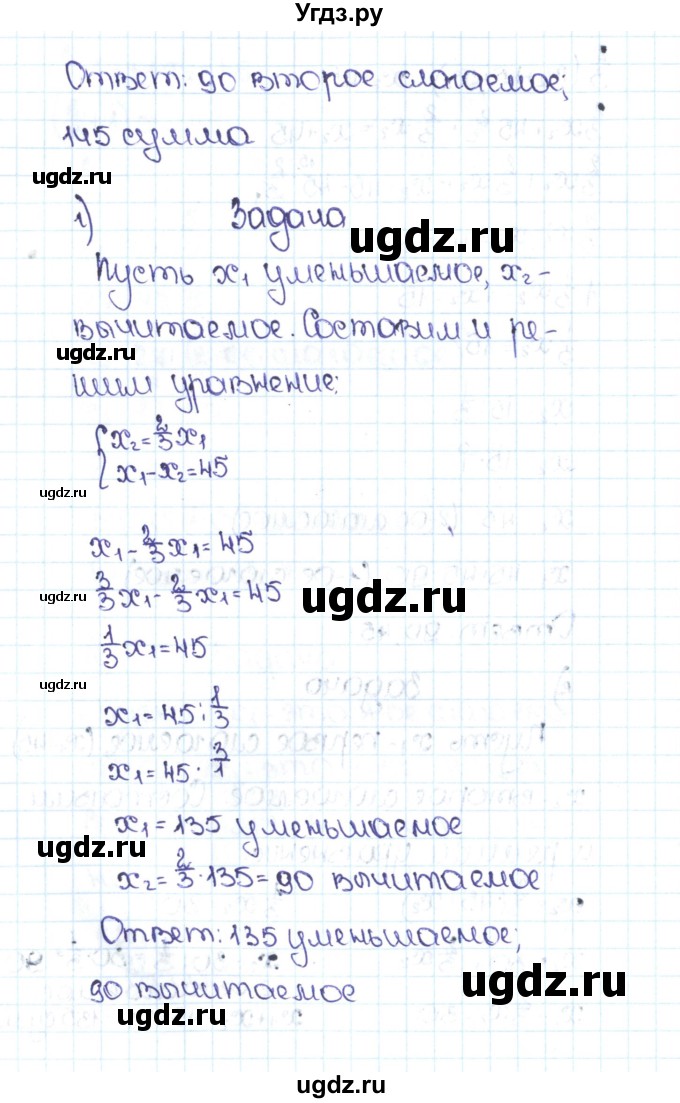 Угдз.ру
Ответ: 90 второе слагаемое;
145 сумма
ugdz.ru
1) Задача
ugdz.ru
Пусть x₁ уменьшаемое, x₂ -
вычитаемое. Составим и ре-
ugdz.ru
шим уравнение:
{x₂=2/3x₁
x₁-x₂=45
ugdz.ru
x₁-2/3x₁=45
3/3x₁-2/3x₁=45
ugdz.ru
ugdz.ru
1/3x₁=45
ugdz.ru
x₁=45:1/3
x₁=45·3/1
x₁=135 уменьшаемое
ugdz.ru
x₂=2/3·135=90 вычитаемое
Ответ: 135 уменьшаемое;
ugdz.ru
90 вычитаемое
ugdz.ru
ugdz.ru